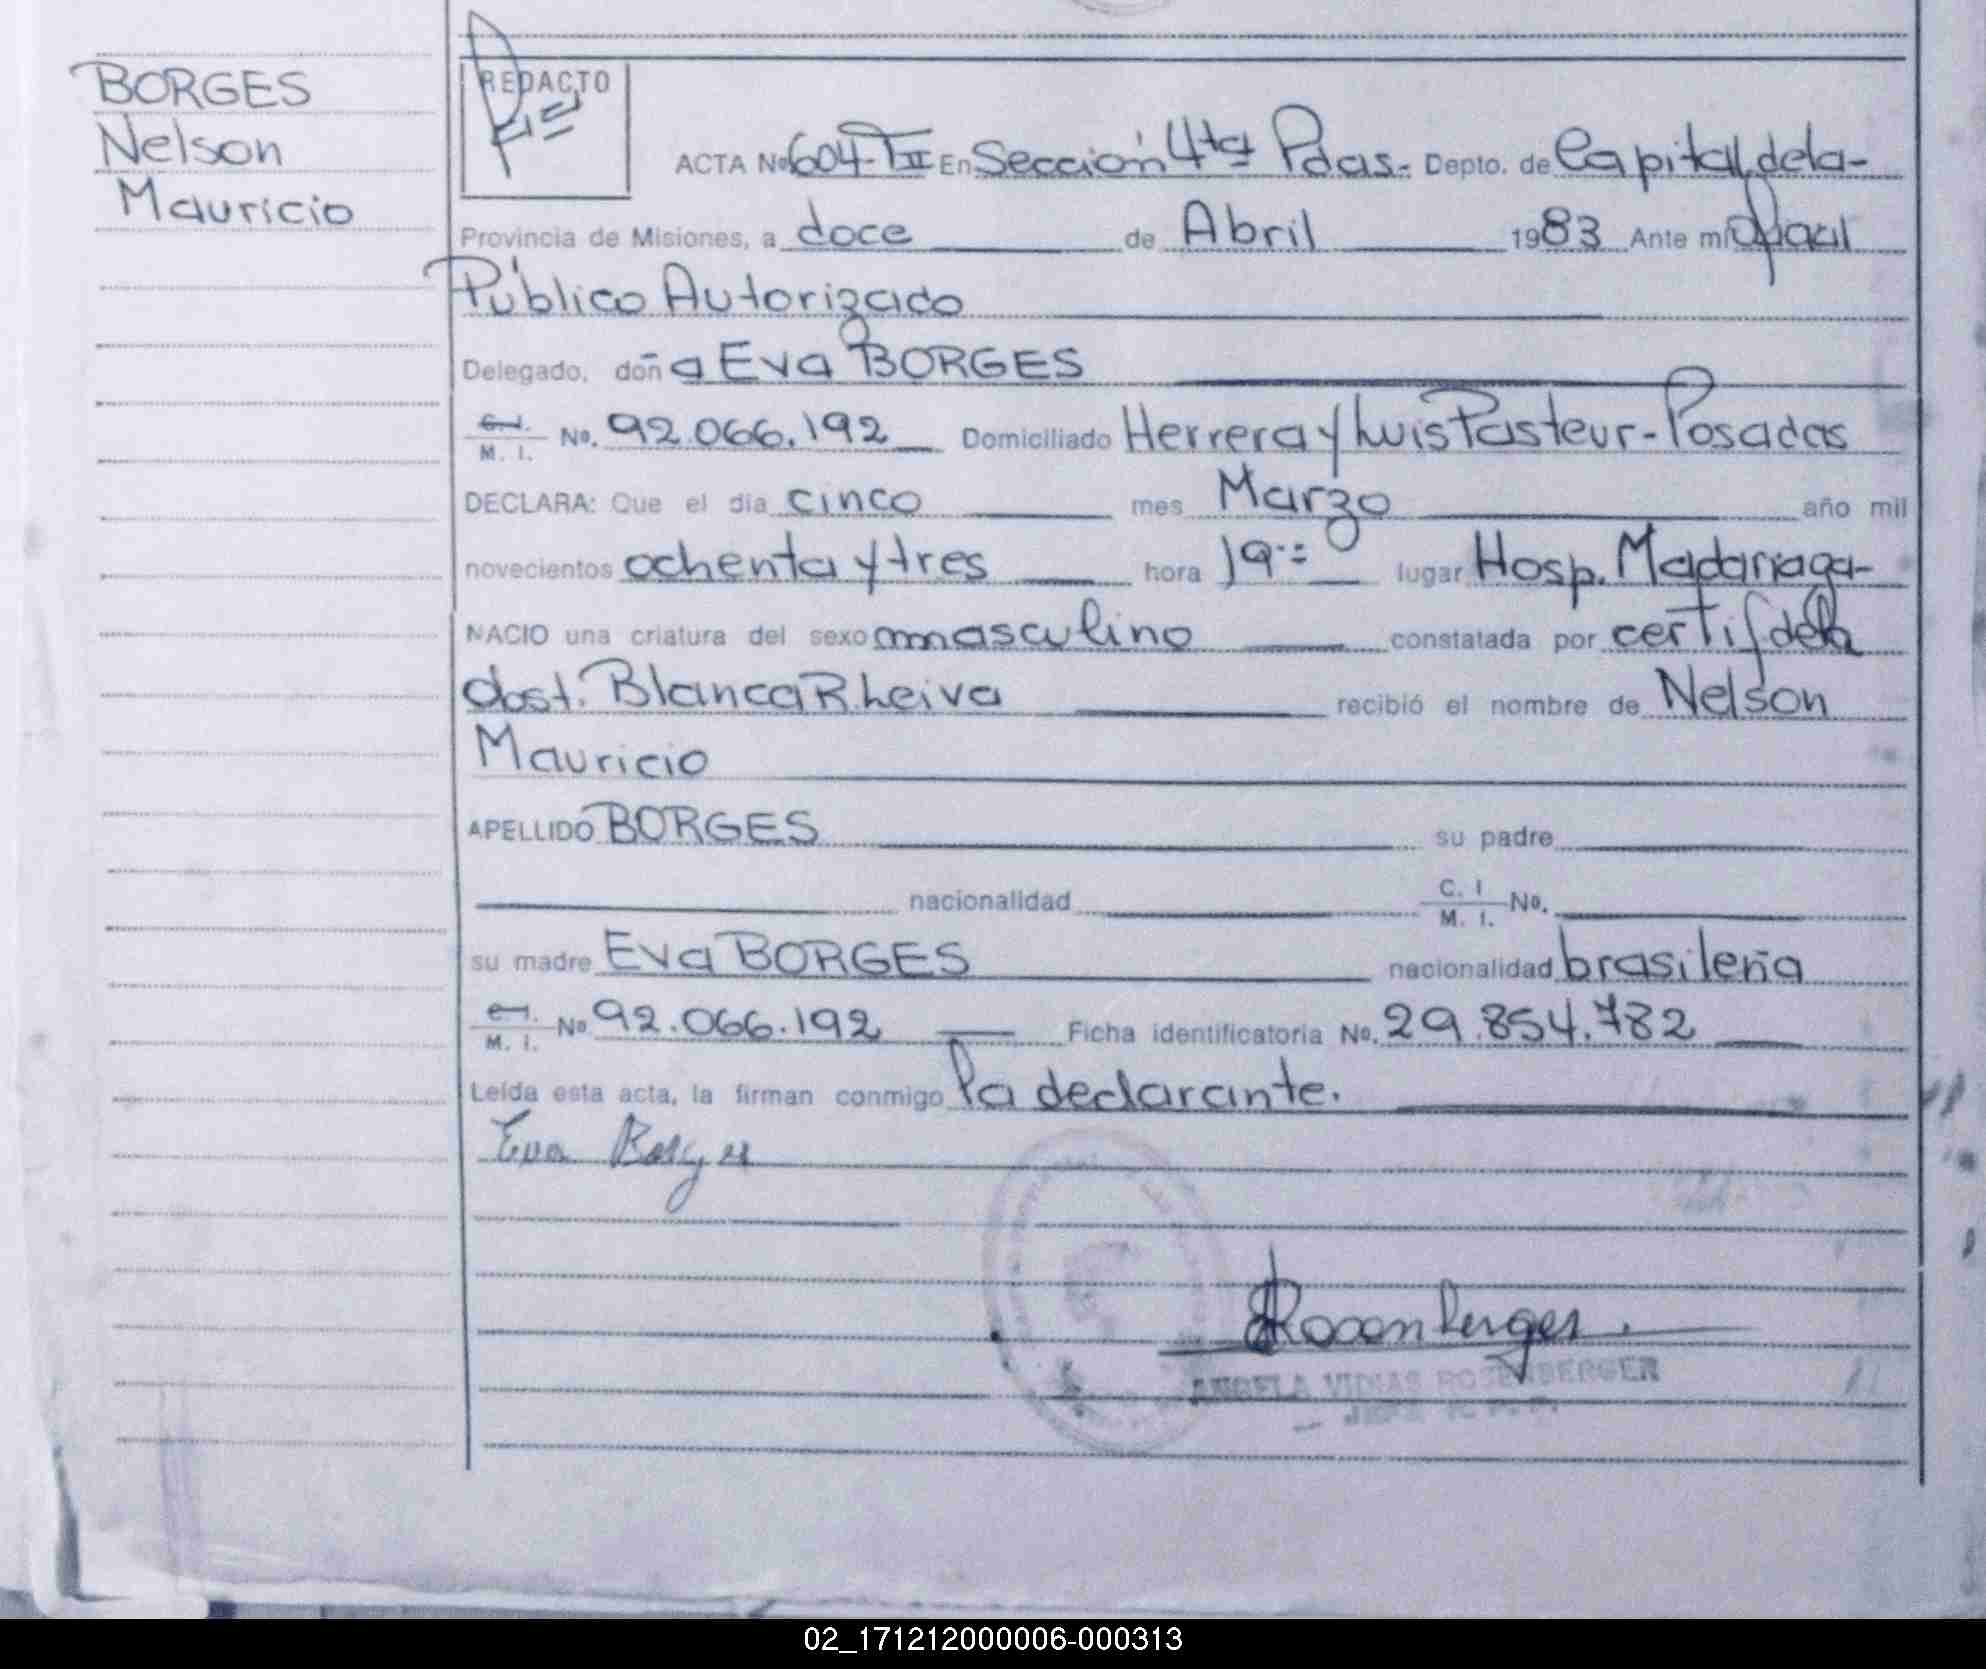 BORGES
Nelson
Mauricio
REDACTO
ACTA No 604-TII En Sección 4ta Pdas.- Depto. de Capital, de la-
Provincia de Misiones, a doce de Abril 1983 Ante mí Oficial
Público Autorizado
Delegado, doña Eva BORGES
C.I. M. I. No. 92.066.192 Domiciliado Herrera y Luis Pasteur-Posadas
DECLARA: Que el día cinco mes Marzo año mil
novecientos ochenta y tres hora 19:= lugar Hosp. Madariaga-
NACIO una criatura del sexo masculino constatada por certif de la
obst. Blanca R. Leiva recibió el nombre de Nelson
Mauricio
APELLIDO BORGES su padre
nacionalidad C. I M. I. No.
su madre Eva BORGES nacionalidad brasileña
M. I. No 92.066.192 Ficha identificatoria No. 29.854.782
Leída esta acta, la firman conmigo la declarante.
Eva Borges
Rosenberger
ANGELA VIDIAS ROSENBERGER
02_171212000006-000313